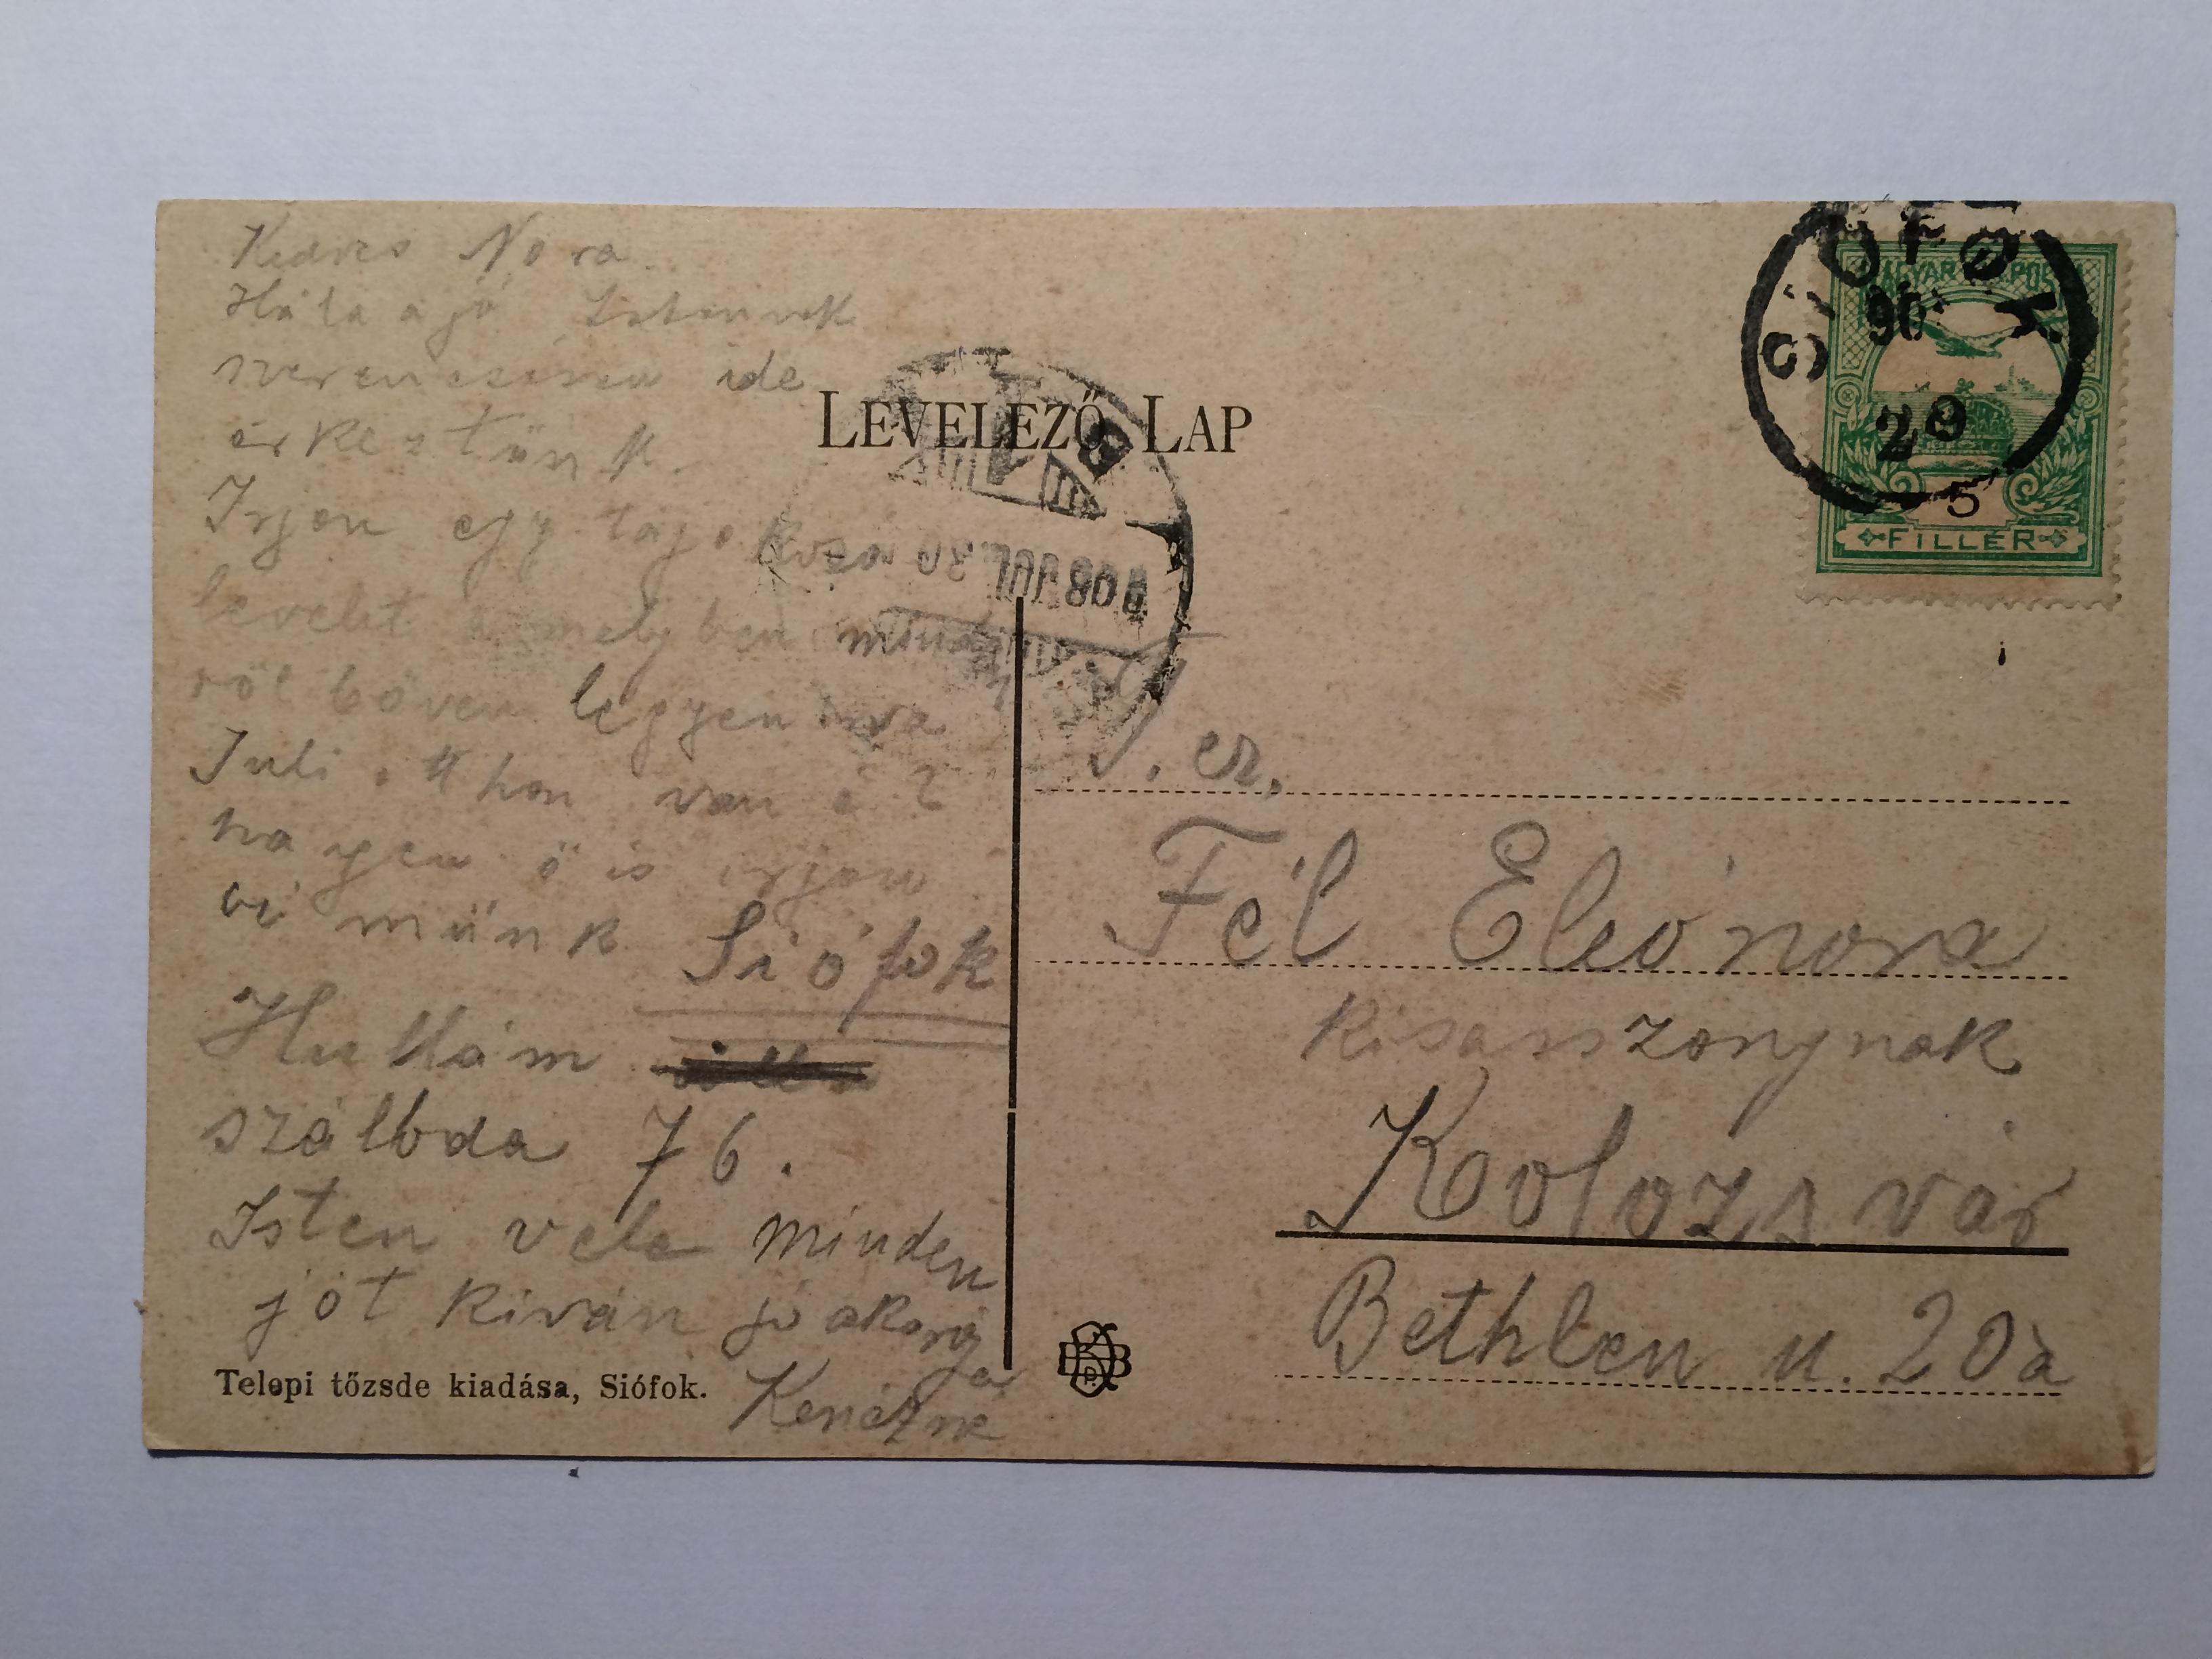 Kedves Nora
Hála a jó Istennek
szerencsésen ide
érkeztünk.
Irjon egy tájékozó
levelet a melyben minden
ről bőven legyen irva
Juli itthon van é ?
ha igen ő is irjon
ci münk Siófok
Hullám
szálloda 76.
Isten vele minden
jót kíván jó akarója
Kenézné
Telepi tőzsde kiadása, Siófok.
LEVELEZŐ LAP
908 JUL. 30
SIÓFOK
29
MAGYAR KIR. POSTA
5
FILLER
Fél Eleónora
kisasszonynak
Kolozsvár
Bethlen u. 20 a